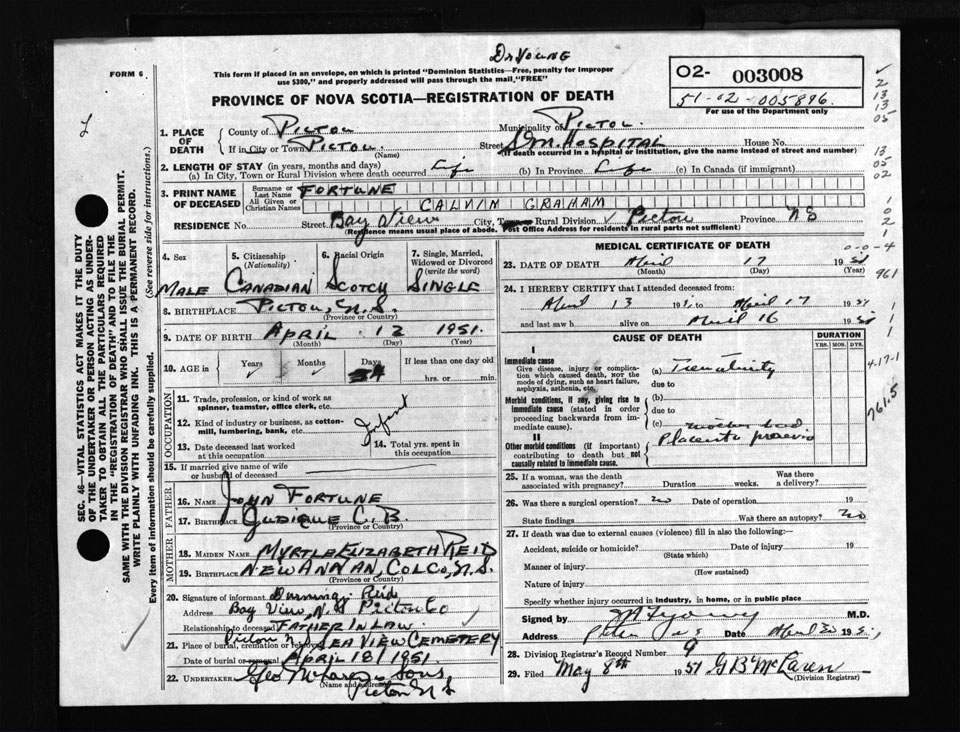 Dr Young
FORM 6.
This form if placed in an envelope, on which is printed "Dominion Statistics—Free, penalty for improper
use $300," and properly addressed will pass through the mail, "FREE"
O2- 003008
51-02-005896.
For use of the Department only
PROVINCE OF NOVA SCOTIA—REGISTRATION OF DEATH
1. PLACE OF DEATH
County of Pictou Municipality of Pictou.
If in City or Town Pictou. Street D M. Hospital House No.
(Name) (If death occurred in a hospital or institution, give the name instead of street and number)
2. LENGTH OF STAY (in years, months and days)
(a) In City, Town or Rural Division where death occurred Life (b) In Province Life (c) In Canada (if immigrant)
3. PRINT NAME OF DECEASED
Surname or Last Name FORTUNE
All Given or Christian Names CALVIN GRAHAM
RESIDENCE No. Street Bay View City, Town Rural Division Pictou Province N S
(Residence means usual place of abode. Post Office Address for residents in rural parts not sufficient)
4. Sex
Male
5. Citizenship (Nationality)
Canadian
6. Racial Origin
Scotch
7. Single, Married, Widowed or Divorced (write the word)
Single
8. BIRTHPLACE Pictou N.S.
(Province or Country)
9. DATE OF BIRTH April 12 1951.
(Month) (Day) (Year)
10. AGE in Years Months Days If less than one day old
hrs. or min.
OCCUPATION
11. Trade, profession, or kind of work as
spinner, teamster, office clerk, etc.
12. Kind of industry or business, as cotton-
mill, lumbering, bank, etc.
Infant
13. Date deceased last worked
at this occupation
14. Total yrs. spent in
this occupation
15. If married give name of wife
or husband of deceased
FATHER
16. NAME John Fortune
17. Birthplace Judique C.B.
(Province or Country)
MOTHER
18. MAIDEN NAME Myrtle Elizabeth Reid
19. BIRTHPLACE New Annan, Colco, N.S.
(Province or Country)
20. Signature of informant Reid
Address Bay View, N.S Pictou Co
Relationship to deceased Father in Law.
21. Place of burial, cremation or removal Pictou N.S Sea View Cemetery
Date of burial or removal April 18/1951
22. UNDERTAKER Geo McLaren & Sons
(Name and address)
Pictou N S
MEDICAL CERTIFICATE OF DEATH
23. DATE OF DEATH April 17 1951
(Month) (Day) (Year)
24. I HEREBY CERTIFY that I attended deceased from:
April 13 to April 17 1951
and last saw h alive on April 16 1951
CAUSE OF DEATH
DURATION
YRS. MOS. DYS.
I
Immediate cause
Give disease, injury or complica-
tion which caused death, NOT the
mode of dying, such as heart failure,
asphyxia, asthenia, etc.
(a) Prematurity
due to
Morbid conditions, if any, giving rise to
immediate cause (stated in order
proceeding backwards from im-
mediate cause)
(b)
due to
(c) mother had
II
Other morbid conditions (if important)
contributing to death but not
causally related to immediate cause.
Placenta praevia
25. If a woman, was the death
associated with pregnancy? Duration weeks. Was there a delivery?
26. Was there a surgical operation? no Date of operation 19
State findings Was there an autopsy? no
27. If death was due to external causes (violence) fill in also the following:
Accident, suicide or homicide? Date of injury 19
(State which)
Manner of injury
(How sustained)
Nature of injury
Specify whether injury occurred in industry, in home, or in public place
Signed by M.D.
Address Date April 195
28. Division Registrar's Record Number 9
29. Filed May 8th 1951 G B McLaren
(Division Registrar)
SEC. 46—VITAL STATISTICS ACT MAKES IT THE DUTY
OF THE UNDERTAKER OR PERSON ACTING AS UNDER-
TAKER TO OBTAIN ALL THE PARTICULARS REQUIRED
IN THE "REGISTRATION OF DEATH" AND TO FILE THE
SAME WITH THE DIVISION REGISTRAR WHO SHALL ISSUE THE BURIAL PERMIT.
WRITE PLAINLY WITH UNFADING INK. THIS IS A PERMANENT RECORD.
Every item of information should be carefully supplied. (See reverse side for instructions.)
2
13
13
05
13
05
02
1
0
2
1
0-0-4
961
1
1
1
417-1
761.5